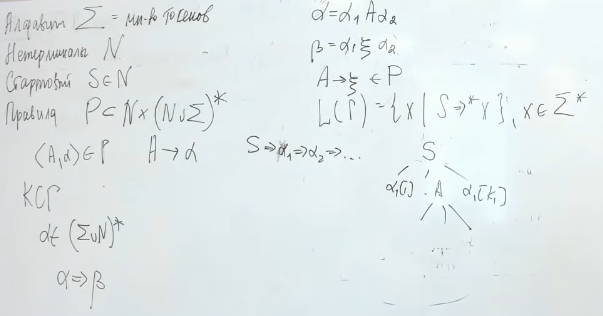 Алфавит Σ = мн-во токенов
Нетерминалы N
Стартовый S∈N
Правила P⊂N×(N∪Σ)*
(A,α)∈P A→α
КСГ
α∈(Σ∪N)*
α⇒β
α=α₁Aα₂
β=α₁ξα₂
A→ξ ∈P
L(Γ)={x | S⇒*x}, x∈Σ*
S⇒α₁⇒α₂⇒...
S
α₁[1] . A α₁[k₁]